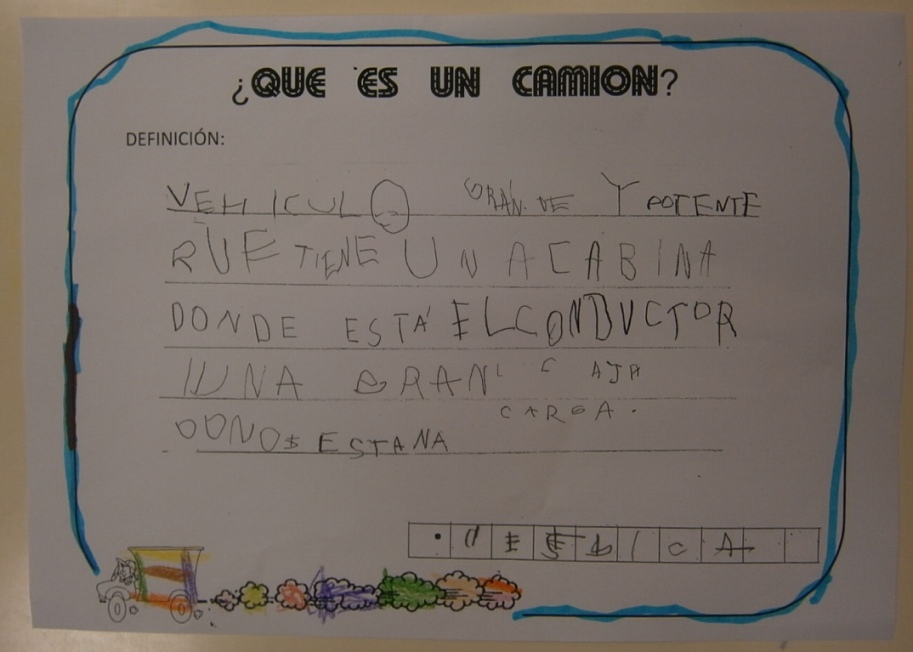 ¿QUE ES UN CAMION?
DEFINICIÓN:
VEHICULO GRAN.DE Y POTENTE
QUE TIENE UNA CABINA
DONDE ESTÁ EL CONDUCTOR
IUNA GRAN C AJA
CARGA.
ESTANA